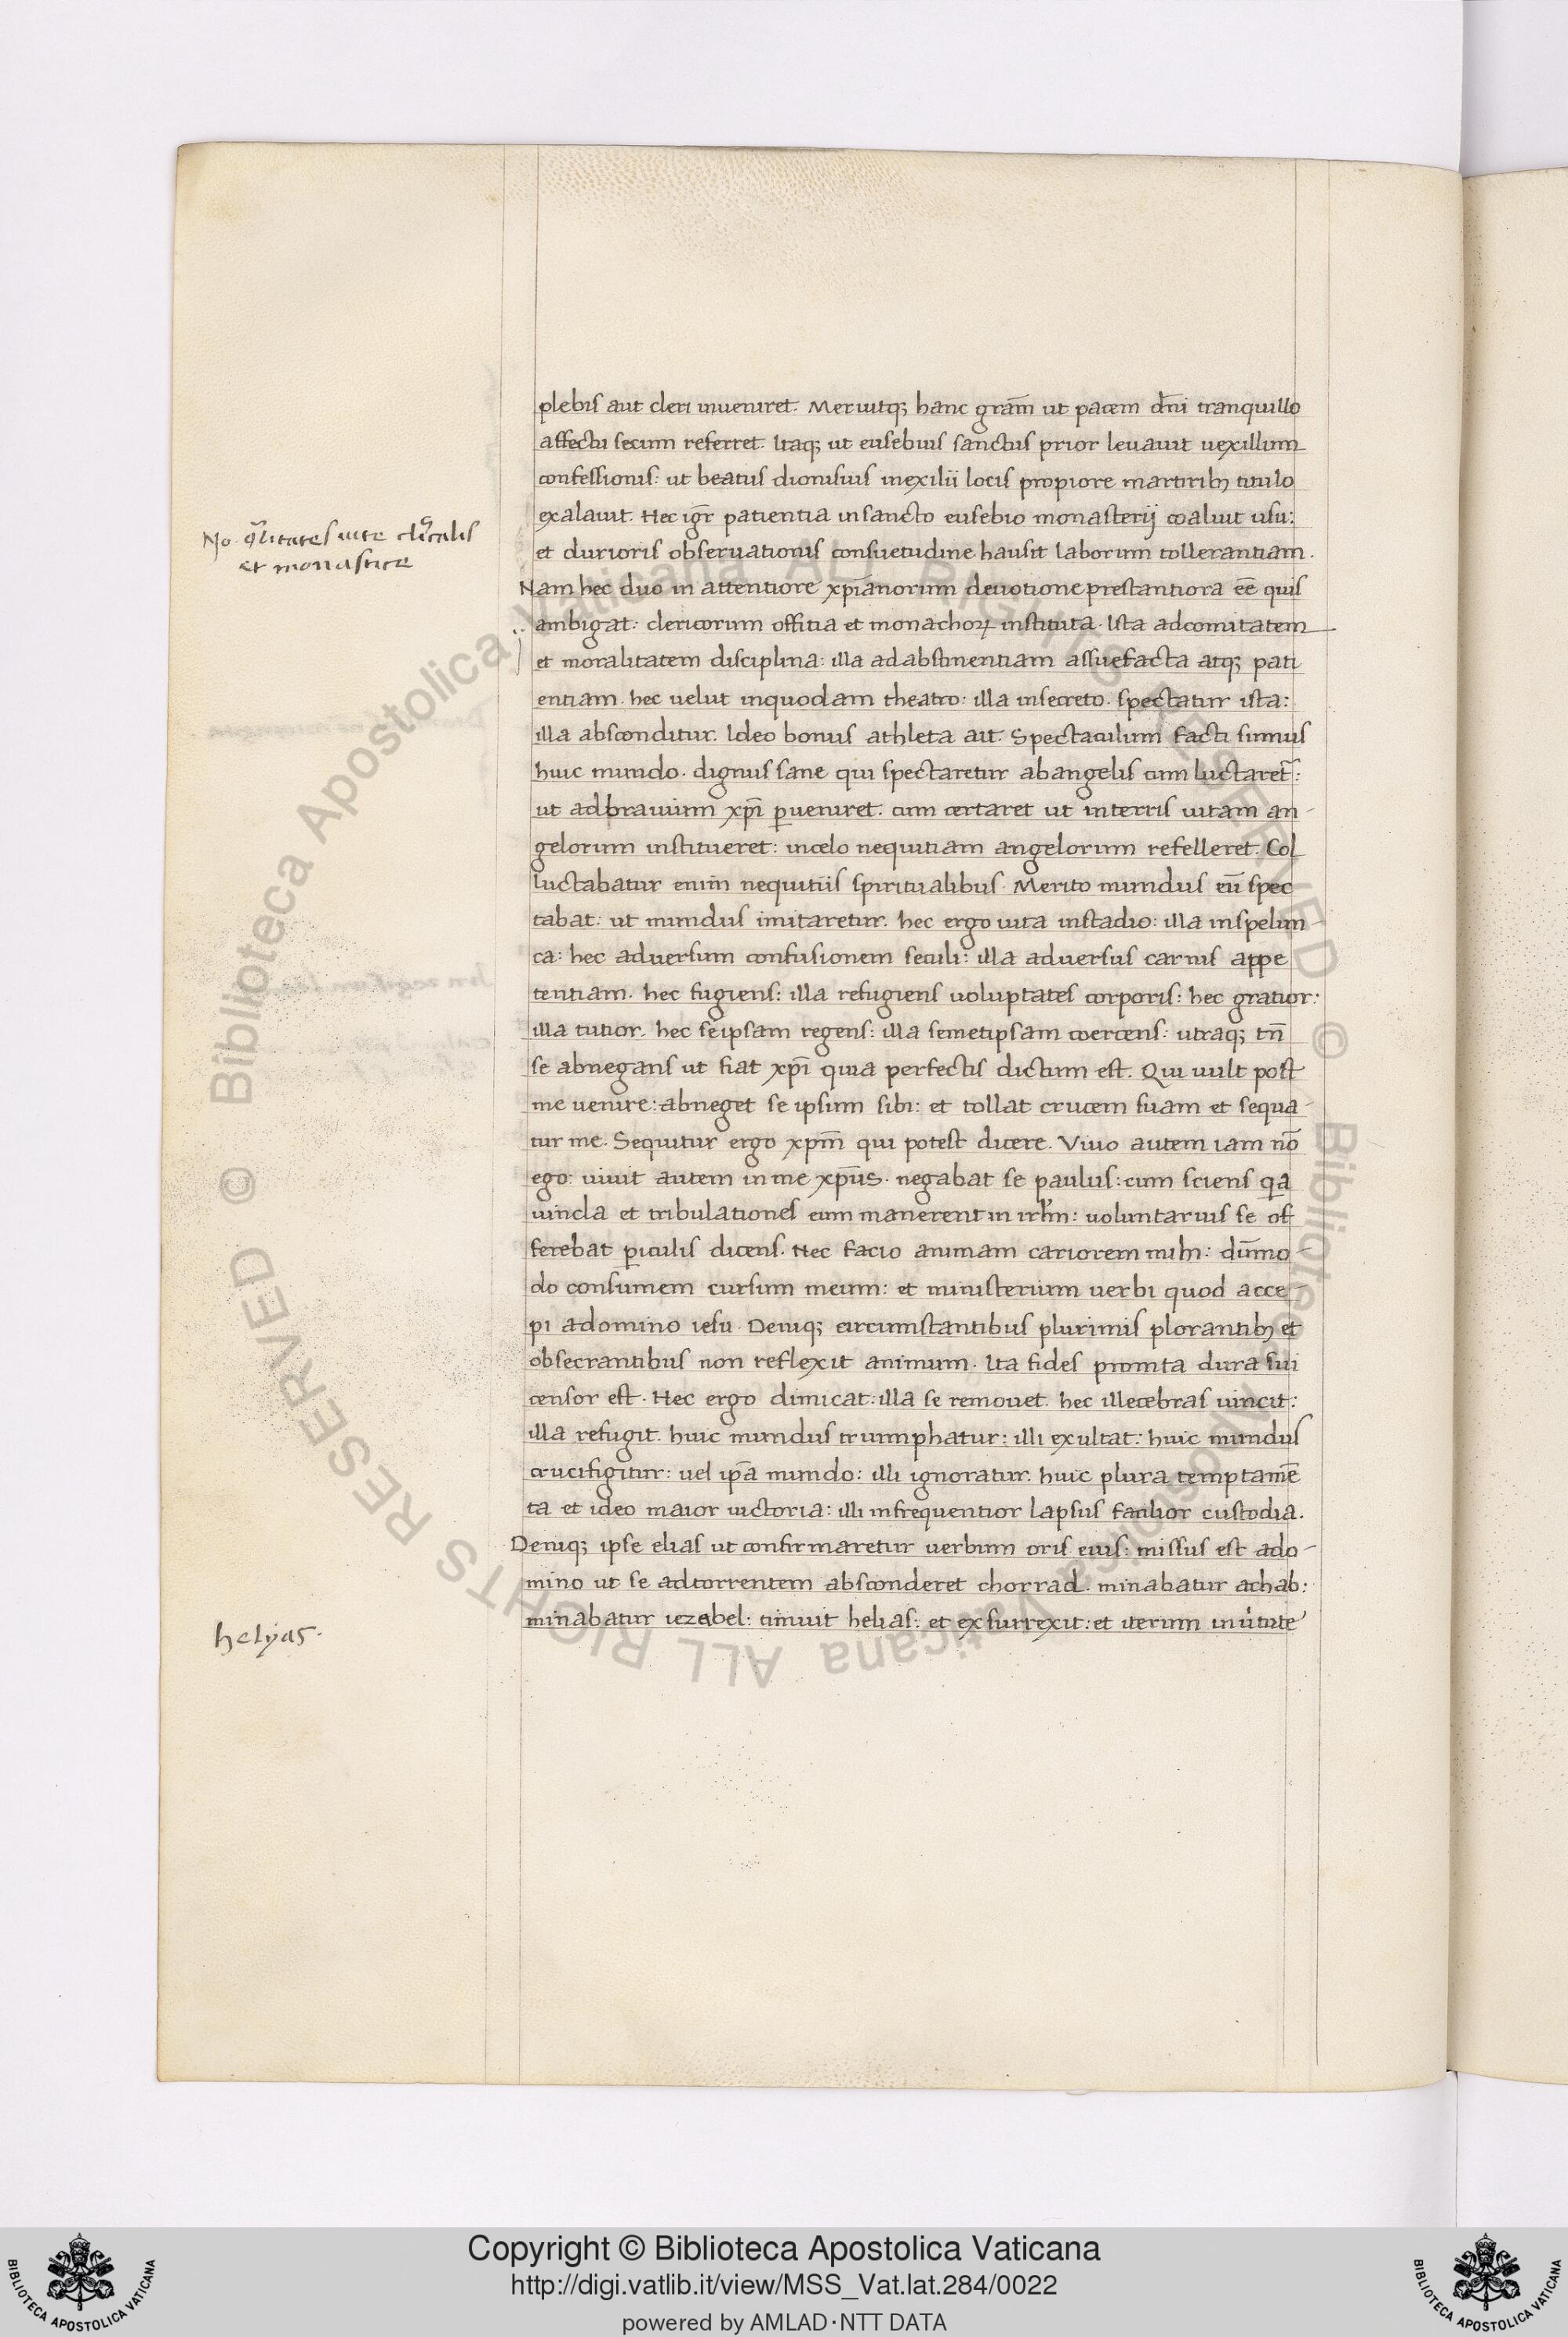 plebis aut cleri inueniret. Meruitq; hanc gr̄am ut pacem dn̄i tranquillo
affectu secum referret. Itaq; ut eusebius sanctus prior leuauit uexillum
confessionis: ut beatus dionisius inexilii locis propiore martirib; titulo
exalauit. Hec igr̄ patientia insancto eusebio monasterij coaluit usu:
et durioris obseruationis consuetudine hausit laborum tollerantiam.
No. q̄litates uite cl̄icalis
et monastice
Nam hec duo in attentiore xp̄ianorum deuotione prestantiora eē quis
ambigat: clericorum offitia et monachoꝝ instituta. Ista adcomitatem
et moralitatem disciplina: illa adabstinentiam assuefacta atq; pati
entiam. hec uelut inquodam theatro: illa insecreto. spectatur ista:
illa absconditur. Ideo bonus athleta ait. Spectaculum facti sumus
huic mundo. dignus sane qui spectaretur abangelis cum luctaret᷑:
ut adbrauium xp̄i ꝑueniret. cum certaret ut interris uitam an-
gelorum institueret: incelo nequitiam angelorum refelleret. Col
luctabatur enim nequitiis spiritualibus. Merito mundus eū spec
tabat: ut mundus imitaretur. hec ergo uita instadio: illa inspelun-
ca: hec aduersum confusionem seculi: illa aduersus carnis appe
tentiam. hec fugiens: illa refugiens uoluptates corporis: hec gratior:
illa tutior. hec seipsam regens: illa semetipsam coercens: utraq; tn̄
se abnegans ut fiat xp̄i quia perfectis dictum est. Qui uult post
me uenire: abneget se ipsum sibi: et tollat crucem suam et sequa-
tur me. Sequitur ergo xp̄m qui potest dicere. Viuo autem iam nō
ego: uiuit autem in me xp̄us. negabat se paulus: cum sciens qa
uincla et tribulationes eum manerent in irlm̄: uoluntarius se of
ferebat ꝑiculis dicens. Nec facio animam cariorem mihi: dūmo-
do consumem cursum meum: et ministerium uerbi quod acce-
pi adomino iesu. Deniq; circumstantibus plurimis plorantib; et
obsecrantibus non reflexit animum. Ita fides promta dura sui
censor est. Hec ergo dimicat: illa se remouet. hec illecebras uincit:
illa refugit. huic mundus triumphatur: illi exultat: huic mundus
crucifigitur: uel ip̄a mundo: illi ignoratur. huic plura temptamē
ta et ideo maior uictoria: illi infrequentior lapsus facilior custodia.
Deniq; ipse elias ut confirmaretur uerbum oris eius: missus est ado-
mino ut se adtorrentem absconderet chorrad. minabatur achab:
minabatur iezabel: timuit helias: et exsurrexit: et iterum inuitute
helyas.
© Biblioteca Apostolica Vaticana ALL RIGHTS RESERVED © Biblioteca Apostolica Vaticana ALL RIGHTS RESERVED
Copyright © Biblioteca Apostolica Vaticana
http://digi.vatlib.it/view/MSS_Vat.lat.284/0022
powered by AMLAD·NTT DATA
BIBLIOTECA APOSTOLICA VATICANA
BIBLIOTECA APOSTOLICA VATICANA